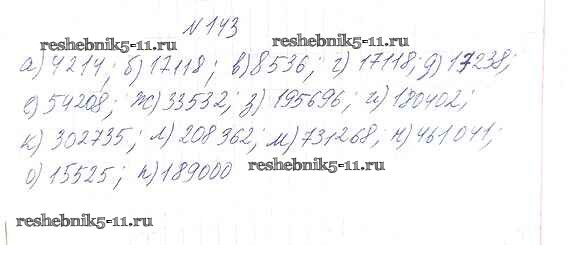 №143
reshebnik5-11.ru reshebnik5-11.ru
а) 4214; б) 17118; в) 8536; г) 17118; д) 17238;
е) 54208; ж) 33532; з) 195696; и) 180402;
к) 302735; л) 208362; м) 731268; н) 461041;
о) 15525; п) 189000 reshebnik5-11.ru
reshebnik5-11.ru